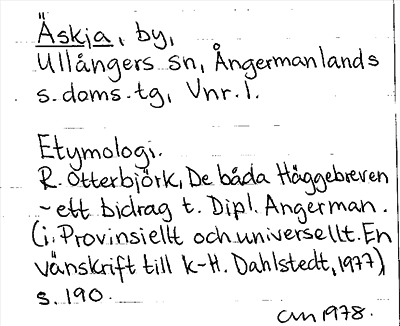 Äskja, by,
Ullångers sn, Ångermanlands
s. doms. tg, Vnr. 1.
Etymologi.
R. Otterbjörk, De båda Häggebreven
- ett bidrag t. Dipl. Angerman.
(i: Provinsiellt och universellt. En
vänskrift till K-H. Dahlstedt, 1977),
s. 190.
1978.